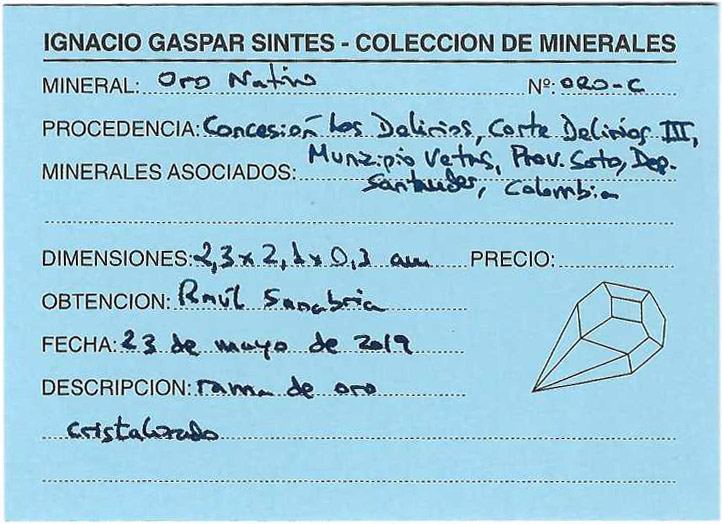 IGNACIO GASPAR SINTES - COLECCION DE MINERALES
MINERAL: Oro Nativo Nº: ORO-C
PROCEDENCIA: Concesión Los Delirios, Corte Delirios III,
Munizipio Vetas, Prov. Soto, Dep.
MINERALES ASOCIADOS:
Santander, Colombia
DIMENSIONES: 2,3 x 2,1 x 0,3 cm PRECIO:
OBTENCION: Raúl Sanabria
FECHA: 23 de mayo de 2019
DESCRIPCION: rama de oro
cristalizado